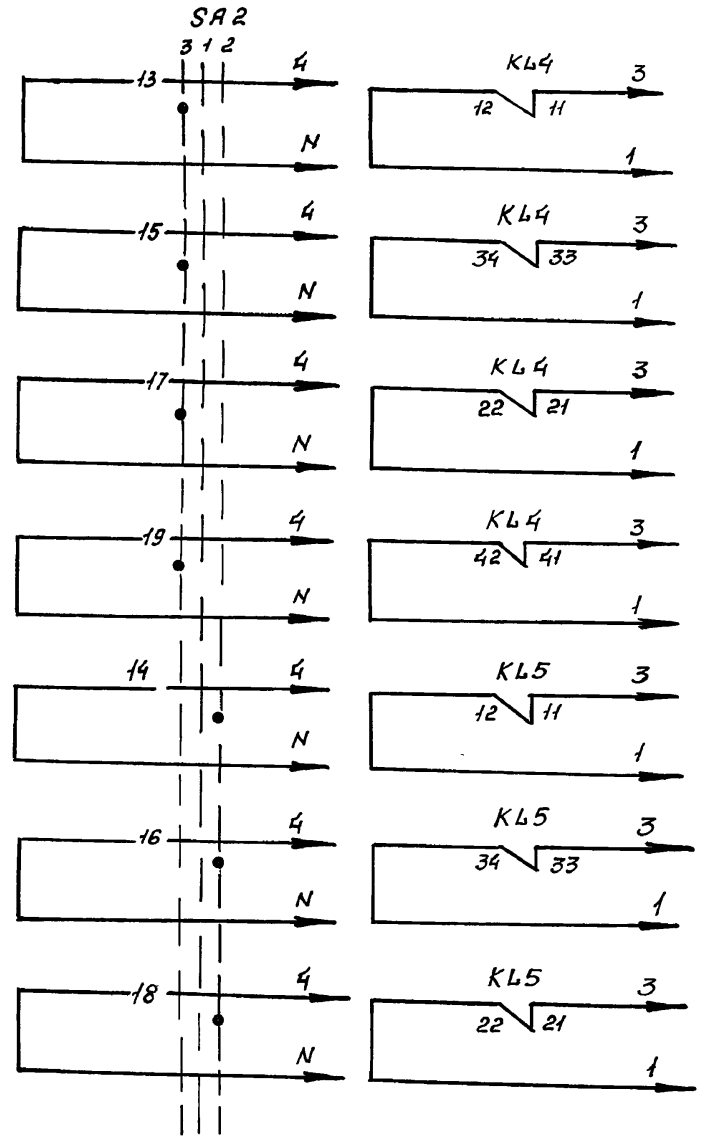 SA2
3 1 2
13 4
N
15 4
N
17 4
N
19 4
N
14 4
N
16 4
N
18 4
N
KL4
3
12 11
1
KL4
3
34 33
1
KL4
3
22 21
1
KL4
3
42 41
1
KL5
3
12 11
1
KL5
3
34 33
1
KL5
3
22 21
1